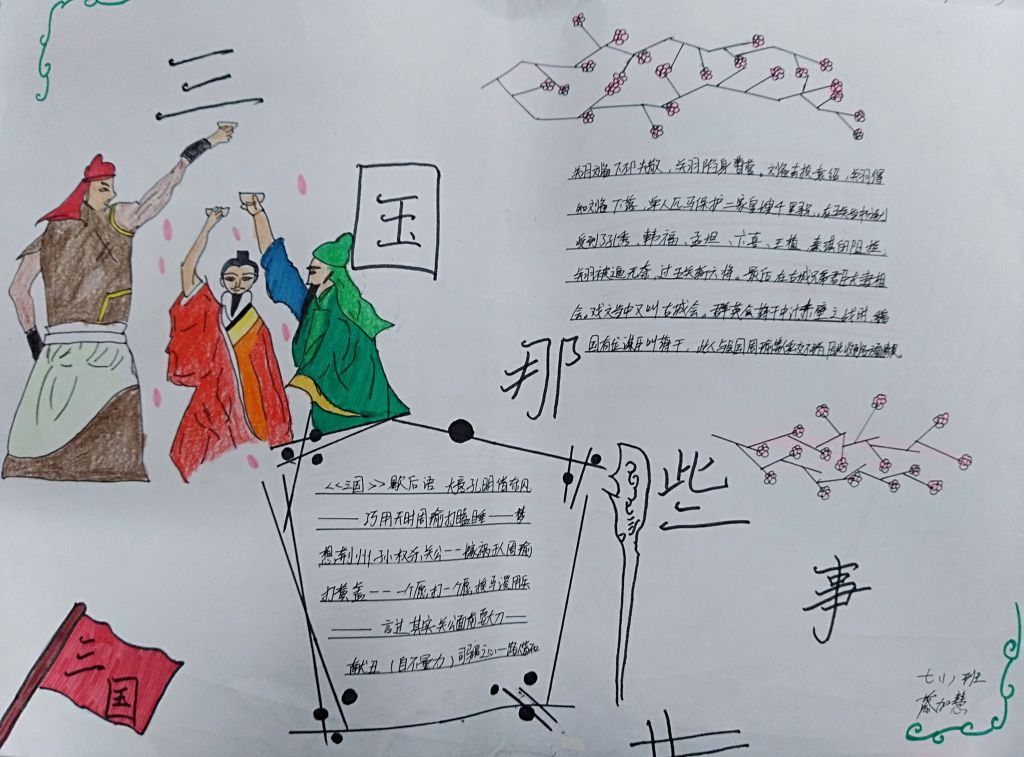 三
国
那
些
事
关羽刘备下邳失散,关羽陷身曹营。刘备去投袁绍,关羽得
知刘备下落,单人匹马保护二家皇嫂千里寻兄,在五关当地
受到了孔秀、韩福、孟坦、卞喜、王植、秦琪的阻拦,
关羽被逼无奈,过五关斩六将。最后在古城兄弟君臣夫妻相
会。戏文当中又叫古城会。群英会蒋干中计赤壁之战时,魏
国有位谋士叫蒋干,此人与吴国周瑜
<<三国>>歇后语 大意孔明借东风
—— 巧用天时周瑜打瞌睡 —— 梦
想荆州孙权杀关公 —— 嫁祸于人周瑜
打黄盖 —— 一个愿打一个愿挨马谡用兵
—— 言过其实关公面前耍大刀 ——
献丑(自不量力)司马昭之心—路人皆知
三
国
七(1)班
加慧